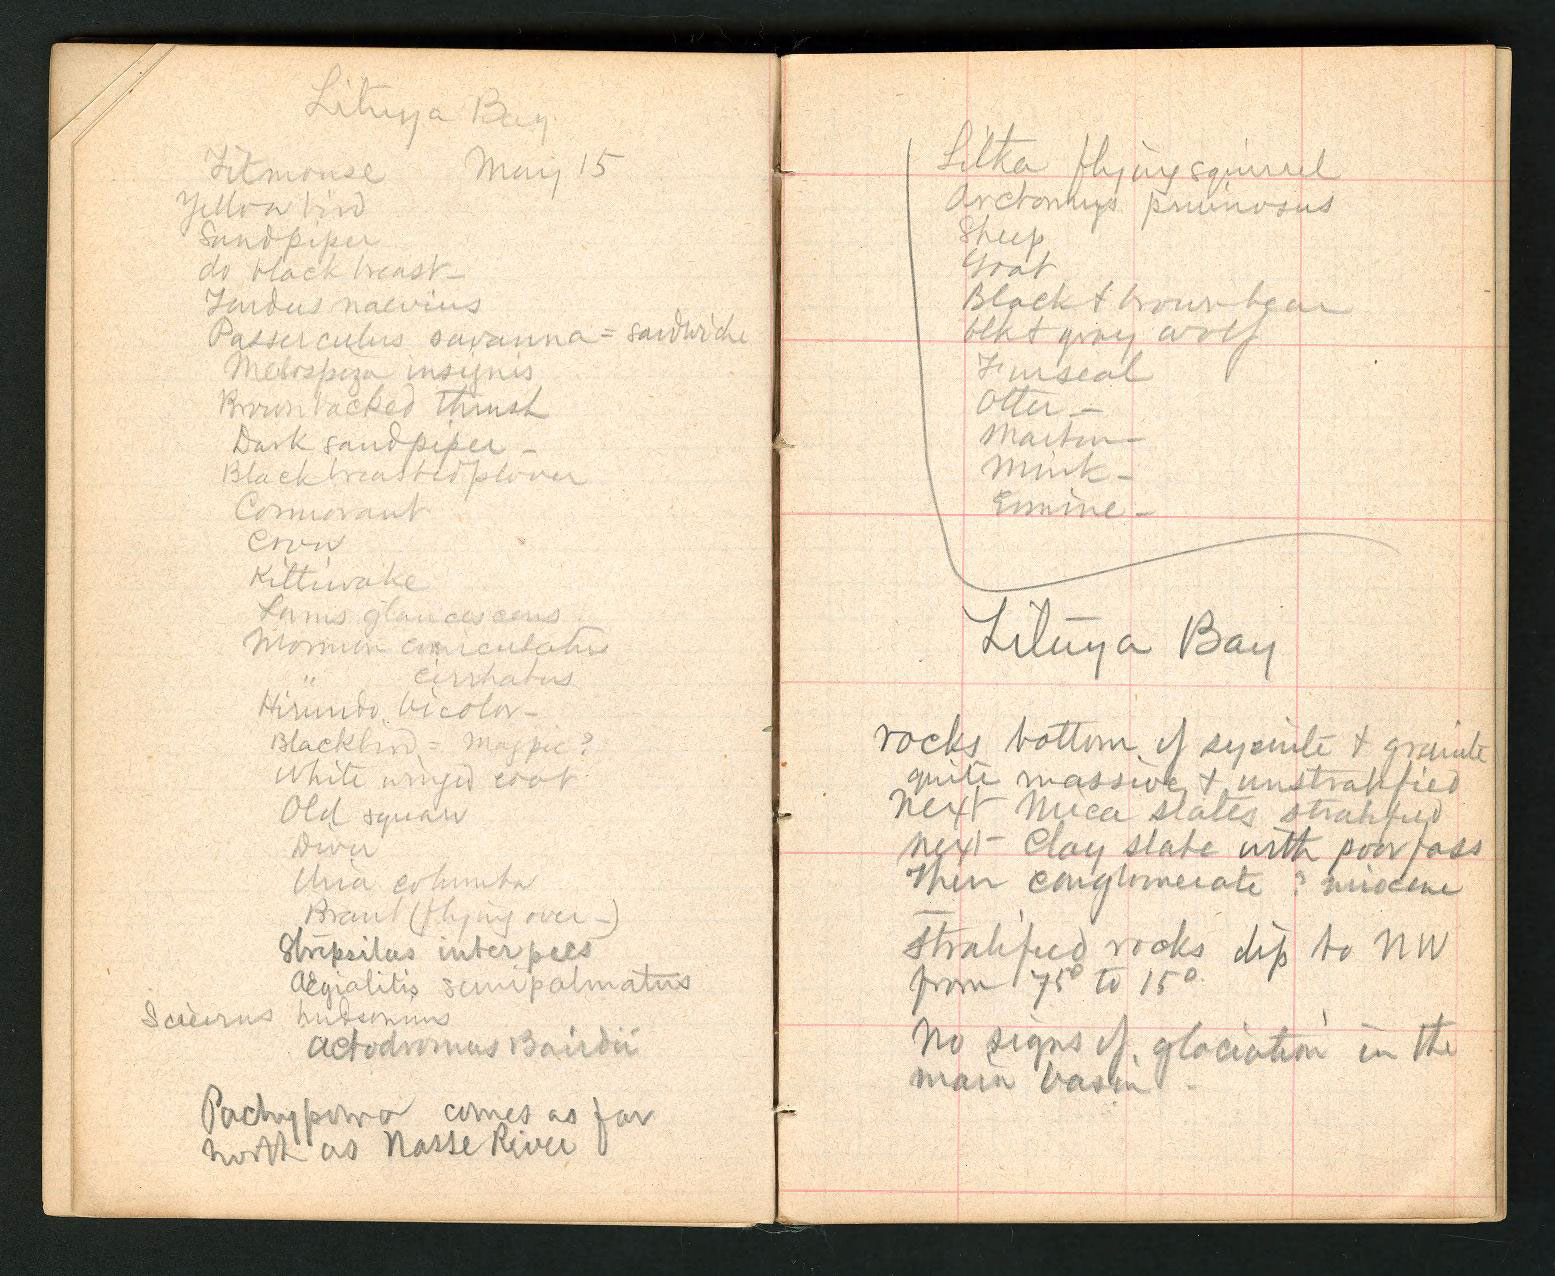 Lituya Bay
Titmouse May 15
Yellow bird
Sandpiper
do black breast –
Turdus naevius
Passerculus savanna = sandwiche
Melospiza insignis
Brown backed thrush
Dark sandpiper –
Black breasted plover
Cormorant
Crow
Kittiwake
Larus glaucescens
Mormon corniculatus
" cirrhatus
Hirundo bicolor –
Blackbird = Magpie?
White winged coot
Old squaw
Diver
Uria columba
Brant (flying over –)
Strepsilas interpres
Ægialitis semipalmatus
Sciurus hudsonius
Actodromus Bairdii
comes as far
north as Nasse River
Sitka flying squirrel
Arctomys pruinosus
Sheep
Goat
Black & brown bear
blk & gray wolf
Furseal
Otter –
Marten –
Mink –
Ermine –
Lituya Bay
rocks bottom of syenite & granite
quite massive & unstratified
next Mica slates stratified
next Clay slate with poor foss
Then conglomerate ? miocene
Stratified rocks dip to NW
from 75° to 15°
No signs of glaciation in the
main basin –